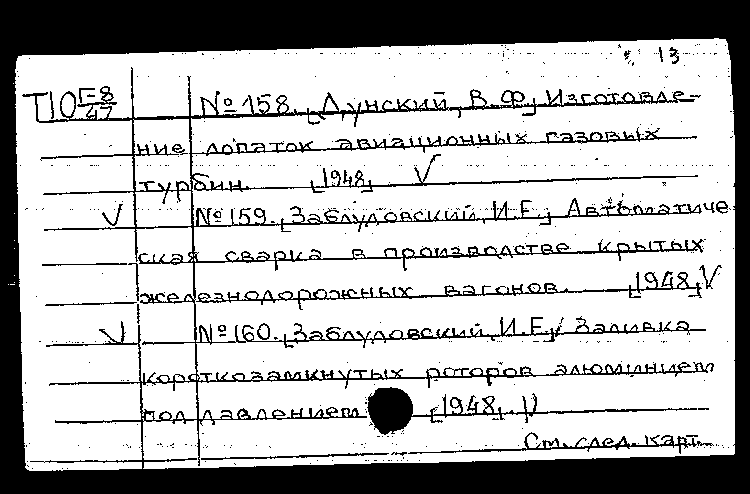 13
П10 Г-8/47 № 158. [Дунский, В.Ф.] Изготовле-
ние лопаток авиационных газовых
турбин. [1948] V
V № 159. [Заблудовский, И.Е.] Автоматиче
ская сварка в производстве крытых
железнодорожных вагонов. [1948] V
V № 160. [Заблудовский, И.Е.] Заливка
короткозамкнутых роторов алюминием
под давлением [1948]. V
См. след. карт.